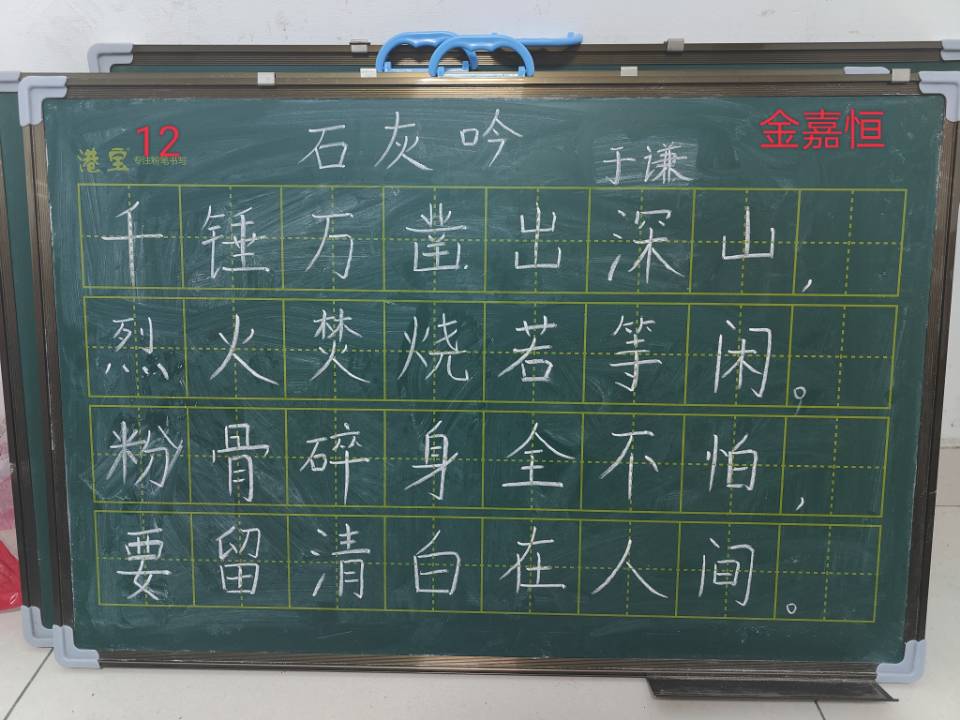 12
金嘉恒
港宝 专注粉笔书写
石灰吟
于谦
千锤万凿出深山，
烈火焚烧若等闲。
粉骨碎身全不怕，
要留清白在人间。